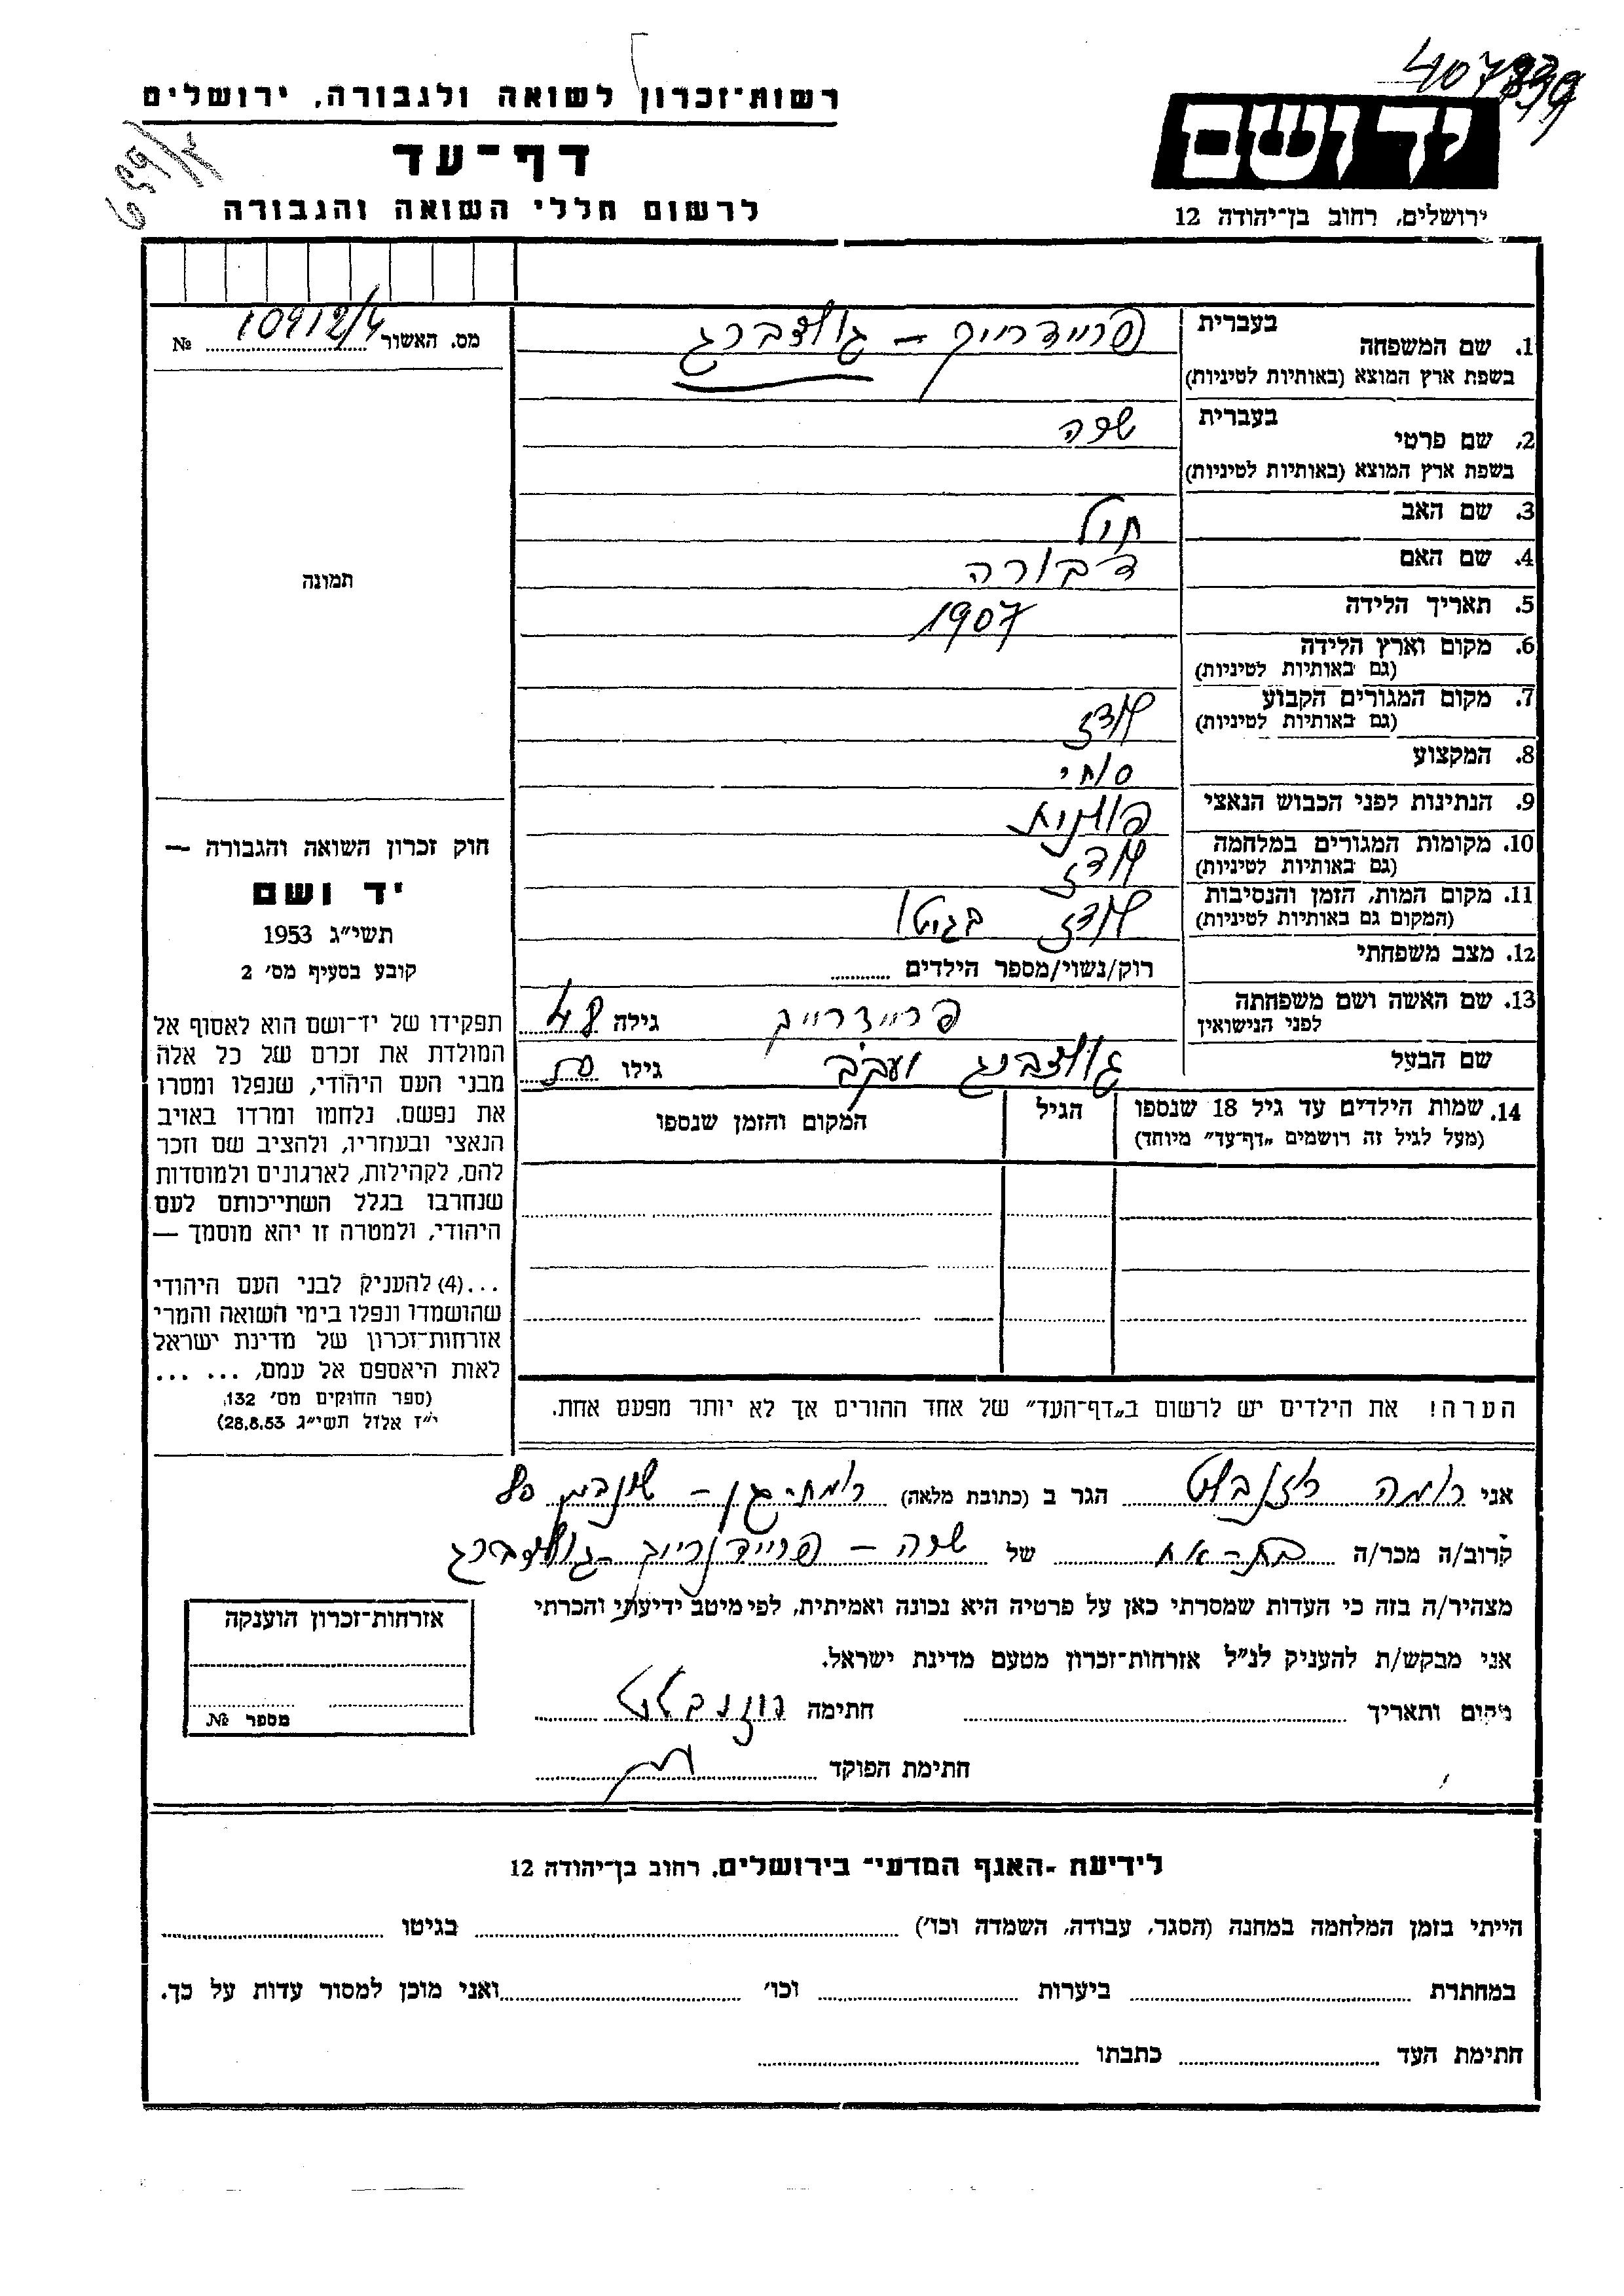 407839
רשות־זכרון לשואה ולגבורה, ירושלים
דף־עד
לרשום חללי השואה והגבורה
ידושם
ירושלים, רחוב בן־יהודה 12
659/2
מס. האשור 10912/4 №
תמונה
1. שם המשפחה בעברית פריידרייך – גולדברג
בשפת ארץ המוצא (באותיות לטיניות)
2. שם פרטי בעברית שרה
בשפת ארץ המוצא (באותיות לטיניות)
3. שם האב
4. שם האם דבורה
5. תאריך הלידה 1907
6. מקום וארץ הלידה
(גם באותיות לטיניות)
7. מקום המגורים הקבוע לודז
(גם באותיות לטיניות)
8. המקצוע סוחר
9. הנתינות לפני הכבוש הנאצי פולנית
10. מקומות המגורים במלחמה לודז
(גם באותיות לטיניות)
11. מקום המות, הזמן והנסיבות לודז בגיטו
(המקום גם באותיות לטיניות)
12. מצב משפחתי רוק/נשוי/מספר הילדים
13. שם האשה ושם משפחתה פריידרייך גילה 48
לפני הנישואין
שם הבעל גולדברג יעקב גילו
14. שמות הילדים עד גיל 18 שנספו הגיל המקום והזמן שנספו
(מעל לגיל זה רושמים „דף־עד” מיוחד)
הערה! את הילדים יש לרשום ב„דף־העד” של אחד ההורים אך לא יותר מפעם אחת.
חוק זכרון השואה והגבורה —
יד ושם
תשי״ג 1953
קובע בסעיף מס׳ 2
תפקידו של יד־ושם הוא לאסוף אל
המולדת את זכרם של כל אלה
מבני העם היהודי, שנפלו ומסרו
את נפשם. נלחמו ומרדו באויב
הנאצי ובעוזריו, ולהציב שם וזכר
להם, לקהילות, לארגונים ולמוסדות
שנחרבו בגלל השתייכותם לעם
היהודי, ולמטרה זו יהא מוסמך —
...(4) להעניק לבני העם היהודי
שהושמדו ונפלו בימי השואה והמרי
אזרחות־זכרון של מדינת ישראל
לאות היאספם אל עמם, ... ...
(ספר החוקים מס׳ 132,
י״ז אלול תשי״ג 28.8.53)
אני רומה רוזנבלט הגר ב (כתובת מלאה) רמת־גן –
קרוב/ה מכר/ה בת־אח של שרה – פריידרייך – גולדברג
מצהיר/ה בזה כי העדות שמסרתי כאן על פרטיה היא נכונה ואמיתית, לפי מיטב ידיעתי והכרתי
אני מבקש/ת להעניק לנ״ל אזרחות־זכרון מטעם מדינת ישראל.
מקום ותאריך חתימה רוזנבלט
חתימת הפוקד
אזרחות־זכרון הוענקה
מספר №
לידיעת ־האגף המדעי־ בירושלים, רחוב בן־יהודה 12
הייתי בזמן המלחמה במחנה (הסגר, עבודה, השמדה וכו׳) בגיטו
במחתרת ביערות וכו׳ ואני מוכן למסור עדות על כך.
חתימת העד כתבתו